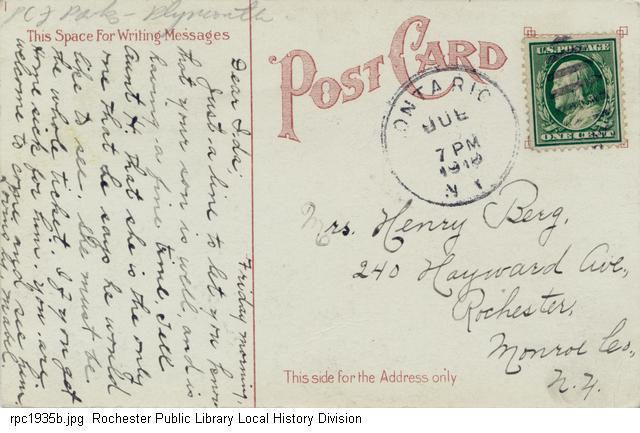 PC J Parks - Plymouth
This Space For Writing Messages
POST CARD
U.S. POSTAGE
ONE CENT
ONTARIO
JUL
7 PM
1910
N.Y.
Friday morning,
Dear Ida;
Just a line to let you know
that your son is well, and is
having a fine time. Tell
Aunt H that she is the only
one that he says he would
like to see. She must be
the whole ticket. If you get
home sick for him. you are
welcome to come and see him.
Mabel.
Mrs. Henry Berg,
240 Hayward Ave,
Rochester,
Monroe Co,
N.Y.
This side for the Address only
rpc1935b.jpg Rochester Public Library Local History Division